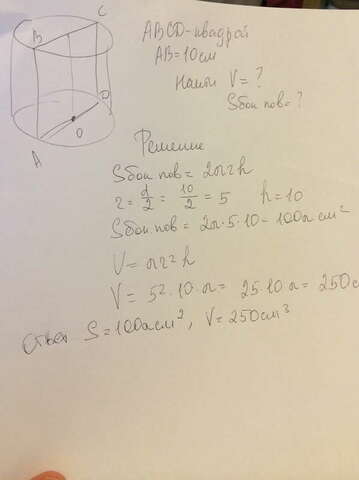 B
C
A
D
O
ABCD-квадрат
AB=10см
Найти V=?
Sбок пов=?
Решение
Sбок пов= 2πrh
r = d/2 = 10/2 = 5 h=10
Sбок пов= 2π·5·10=100π см²
V = πr²h
V = 5²·10·π= 25·10π= 250с
Ответ S=100πсм², V=250см³